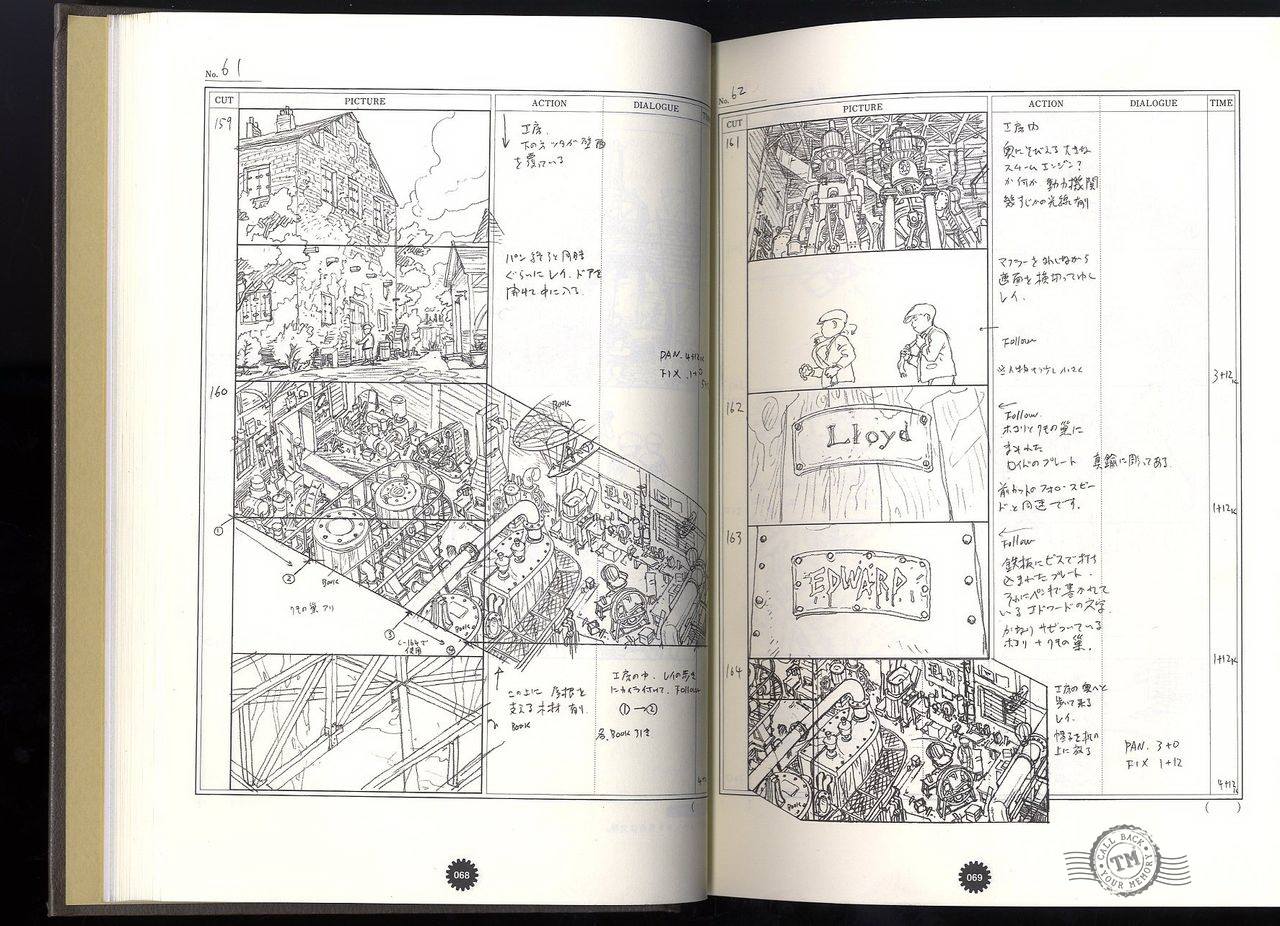 No. 61
CUT
PICTURE
ACTION
DIALOGUE
159
工房.
下のネツタイ 壁面
を覆っている
パン終ると同時
ぐらいに レイ. ドアを
開けて中に入る.
PAN. 4+12k
FIX. 1+0
160
Book
①
②
Book
クモの巣 アリ
③
Book
C-164で
使用
この上に 屋根を
支える木材 有り.
Book
工房の中. レイの歩き
にカメラ付けて. Follow
①→②
Book引き
068
No. 62
CUT
PICTURE
ACTION
DIALOGUE
TIME
161
工房内
奥にそびえる 大きな
スチームエンジン?
か何か 動力機関
幾すじかの光線有り
マフラーを外しながら
画面を横切ってゆく
レイ.
Follow
3+12k
162
Lloyd
Follow.
ホコリとクモの巣に
まみれた
ロイドのプレート 真鍮に彫ってある.
前カットのフォロースピー
ドと同速です.
1+12k
163
EDWARD.
Follow
鉄板にビスで打ち
込まれたプレート.
それにペンキで書かれて
いるエドワードの文字.
かなりサビついている
ホコリ+クモの巣.
1+12k
164
工房の奥へと
歩いて来る
レイ.
帽子を机の
上に放る
PAN. 3+0
FIX 1+12
Book
4+12k
( )
069
CALL BACK
TM
YOUR MEMORY